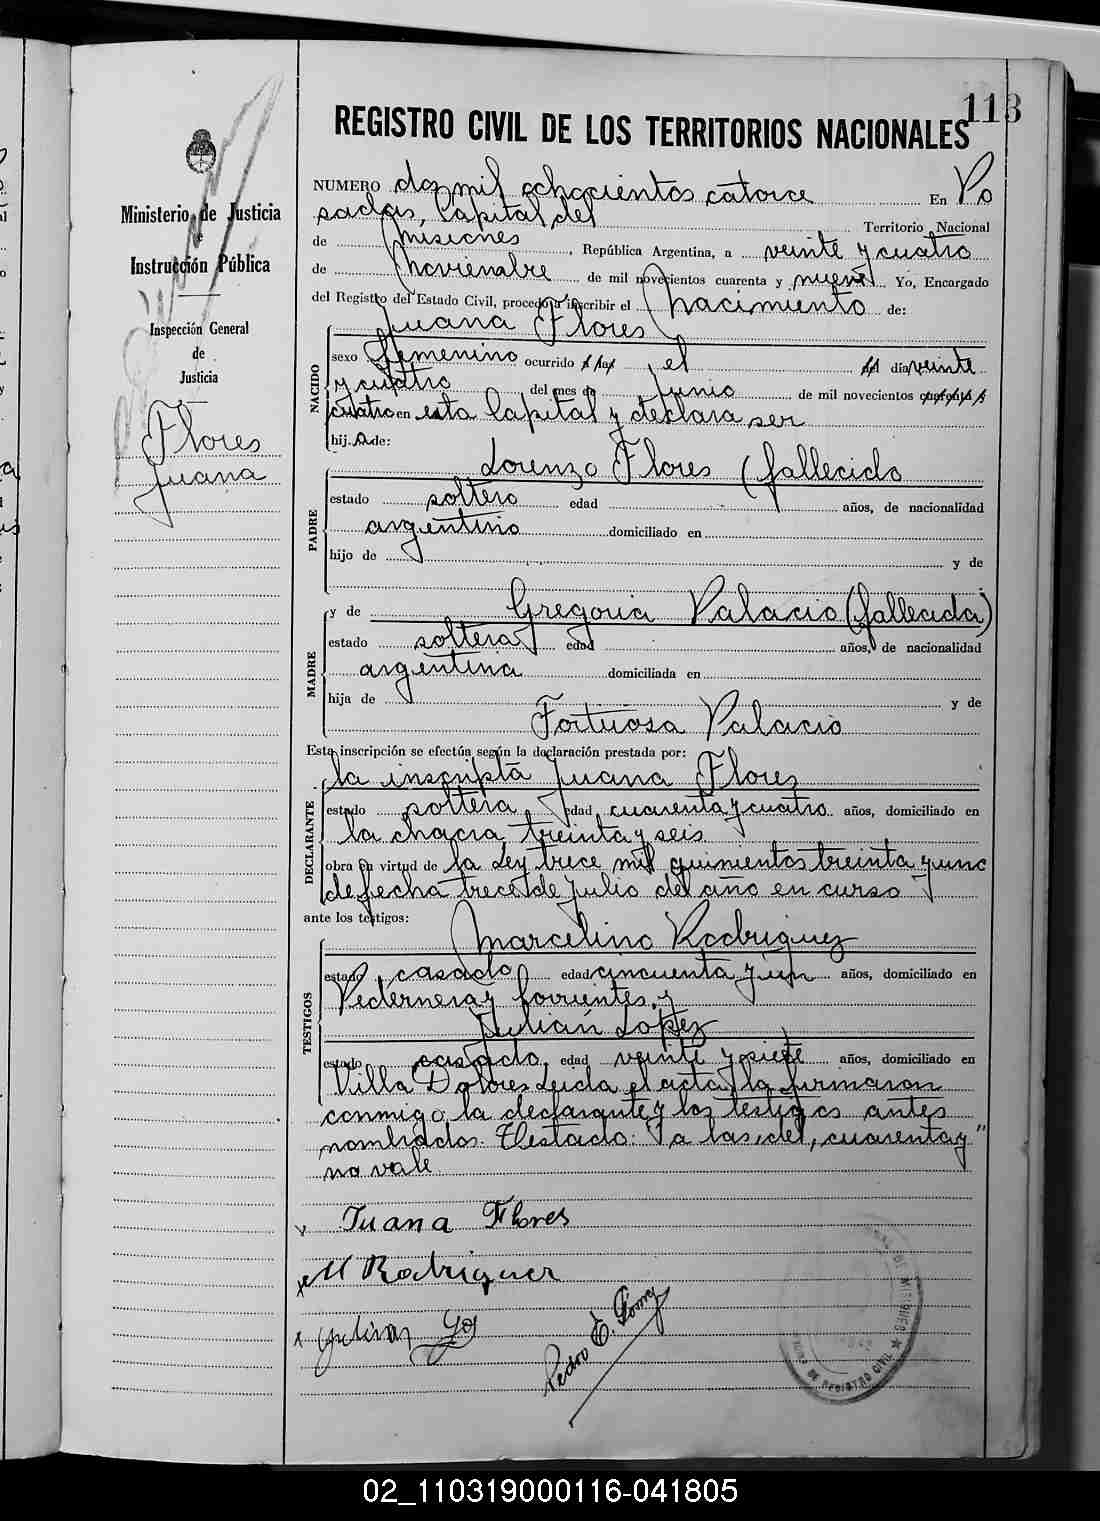 113
REGISTRO CIVIL DE LOS TERRITORIOS NACIONALES
Ministerio de Justicia
e
Instrucción Pública
Inspección General
de
Justicia
Flores
Juana
NUMERO dos mil ochocientos catorce En Po
sadas, Capital del Territorio Nacional
de Misiones, República Argentina, a veinte y cuatro
de Noviembre de mil novecientos cuarenta y nueve Yo, Encargado
del Registro del Estado Civil, procedo a inscribir el Nacimiento de:
NACIDO
Juana Flores
sexo femenino ocurrido a las el del día veinte
y cuatro del mes de Junio de mil novecientos cuarenta y
cuatro en esta Capital y declara ser
hij a de:
PADRE
Lorenzo Flores (fallecido
estado soltero edad años, de nacionalidad
argentino domiciliado en
hijo de y de
MADRE
y de Gregoria Palacio (fallecida)
estado soltera edad años, de nacionalidad
argentina domiciliada en
hija de y de
Fortuosa Palacio
Esta inscripción se efectúa según la declaración prestada por:
DECLARANTE
la inscripta Juana Flores
estado soltera edad cuarenta y cuatro años, domiciliado en
la chacra treinta y seis
obra en virtud de la Ley trece mil quinientos treinta y uno
de fecha trece de Julio del año en curso
ante los testigos:
TESTIGOS
Marcelino Rodriguez
estado casado edad cincuenta y un años, domiciliado en
Pedernera y Corrientes y
Julián Lopez
estado casado edad veinte y siete años, domiciliado en
Villa Dolores Leida el acta, la firmaron
conmigo, la declarante y los testigos antes
nombrados. Testado: "a las, del, cuarenta y"
no vale
Juana Flores
M Rodriguez
Pedro E.
DE MISIONES ★
DE REGISTRO CIVIL
02_110319000116-041805